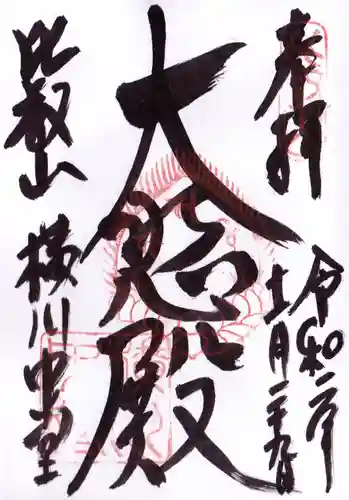 奉拝
令和二年
十一月二十九日
大悲殿
比叡山 横川中堂